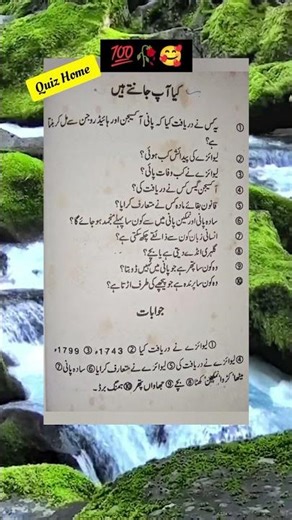 Quiz Home
💯🥀🥰
کیا آپ جانتے ہیں
① یہ کس نے دریافت کیا کہ پانی آکسیجن اور ہائیڈروجن سے مل کر بنتا
ہے؟
② لیوائزے کی پیدائش کب ہوئی؟
③ لیوائزے نے کب وفات پائی؟
④ آکسیجن گیس کس نے دریافت کی؟
⑤ قانون بقائے مادہ کس نے متعارف کرایا؟
⑥ سادہ پانی اور نمکین پانی میں سے کون سا پہلے منجمد ہو جائے گا؟
⑦ انسانی زبان کون سے ذائقے چکھ سکتی ہے؟
⑧ گلہری انڈے دیتی ہے یا بچے؟
⑨ وہ کون سا پتھر ہے جو پانی میں نہیں ڈوبتا؟
⑩ وہ کون سا پرندہ ہے جو پیچھے کی طرف اڑتا ہے؟
جوابات
① لیوائزے نے دریافت کیا ② 1743ء ③ 1799ء
④ لیوائزے نے دریافت کی ⑤ لیوائزے نے متعارف کرایا ⑥ سادہ پانی ⑦
میٹھا، کڑوا، نمکین، کھٹا ⑧ بچے ⑨ جھاواں پتھر ⑩ ہمنگ برڈ۔